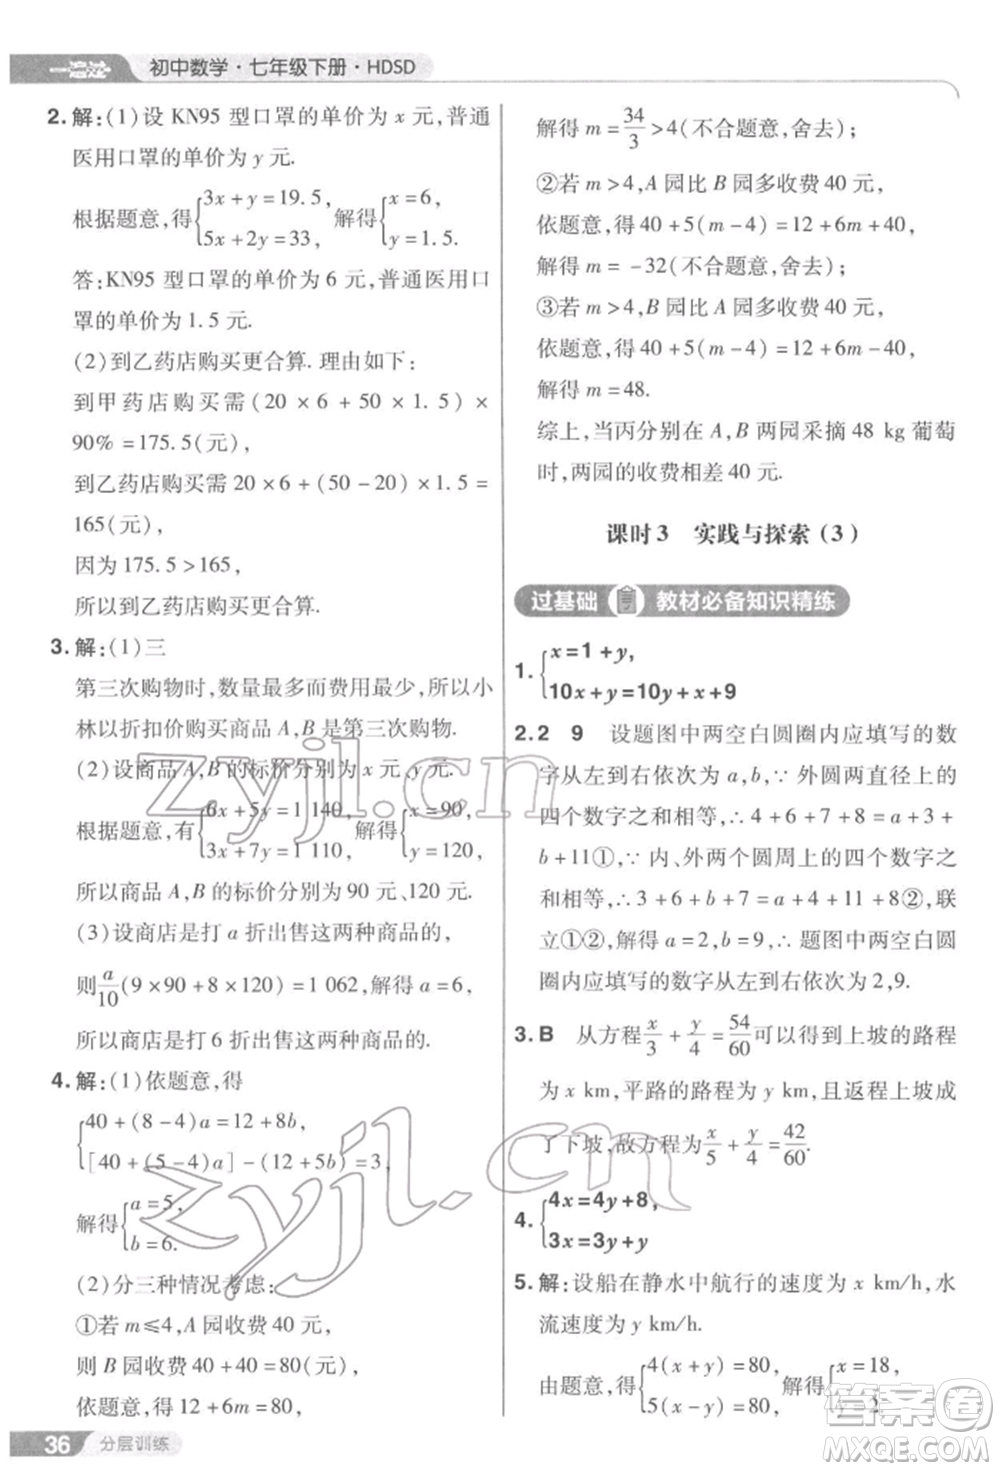 一遍过 初中数学·七年级下册·HDSD
2. 解:(1)设 KN95 型口罩的单价为 x 元,普通
医用口罩的单价为 y 元.
根据题意,得{3x+y=19.5, 5x+2y=33, 解得{x=6, y=1.5.
答:KN95 型口罩的单价为 6 元,普通医用口
罩的单价为 1.5 元.
(2)到乙药店购买更合算. 理由如下:
到甲药店购买需(20×6+50×1.5)×
90%=175.5(元),
到乙药店购买需 20×6+(50-20)×1.5=
165(元),
因为 175.5>165,
所以到乙药店购买更合算.
3. 解:(1)三
第三次购物时,数量最多而费用最少,所以小
林以折扣价购买商品 A,B 是第三次购物.
(2)设商品 A,B 的标价分别为 x 元,y 元.
根据题意,有{6x+5y=1 140, 3x+7y=1 110, 解得{x=90, y=120,
所以商品 A,B 的标价分别为 90 元、120 元.
(3)设商店是打 a 折出售这两种商品的,
则a/10(9×90+8×120)=1 062,解得 a=6,
所以商店是打 6 折出售这两种商品的.
4. 解:(1)依题意,得
{40+(8-4)a=12+8b,
[40+(5-4)a]-(12+5b)=3,
解得{a=5, b=6.
(2)分三种情况考虑:
①若 m≤4,A 园收费 40 元,
则 B 园收费 40+40=80(元),
依题意,得 12+6m=80,
36 分层训练
解得 m=34/3>4(不合题意,舍去);
②若 m>4,A 园比 B 园多收费 40 元,
依题意,得 40+5(m-4)=12+6m+40,
解得 m=-32(不合题意,舍去);
③若 m>4,B 园比 A 园多收费 40 元,
依题意,得 40+5(m-4)+40=12+6m,
解得 m=48.
综上,当丙分别在 A,B 两园采摘 48 kg 葡萄
时,两园的收费相差 40 元.
课时 3 实践与探索(3)
过基础 教材必备知识精练
1. {x=1+y, 10x+y=10y+x+9
2. 2 9 设题图中两空白圆圈内应填写的数
字从左到右依次为 a,b,∵外圆两直径上的
四个数字之和相等,∴4+6+7+8=a+3+
b+11①,∵内、外两个圆周上的四个数字之
和相等,∴3+6+b+7=a+4+11+8②,联
立①②,解得 a=2,b=9,∴题图中两空白圆
圈内应填写的数字从左到右依次为 2,9.
3. B 从方程x/3+y/4=54/60可以得到上坡的路程
为 x km,平路的路程为 y km,且返程上坡成
了下坡,故方程为x/5+y/4=42/60.
4. {4x=4y+8, 3x=3y+y
5. 解:设船在静水中航行的速度为 x km/h,水
流速度为 y km/h.
由题意,得{4(x+y)=80, 5(x-y)=80, 解得{x=18, y=2.
zyjl.cn
zyjl.cn
答案圈
MXQE.COM